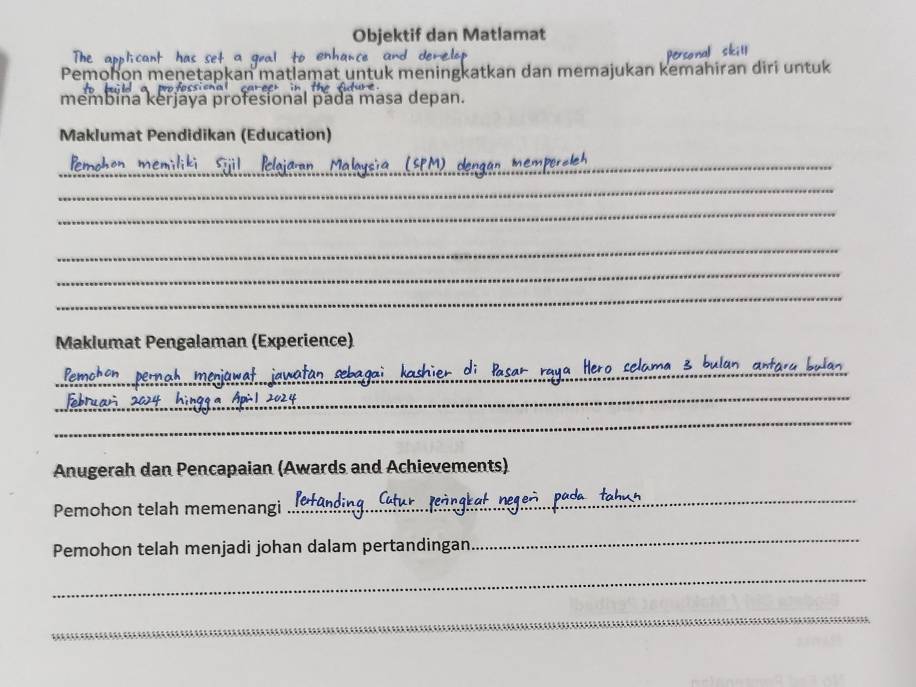 Objektif dan Matlamat
The applicant has set a goal to enhance and develop personal skill
Pemohon menetapkan matlamat untuk meningkatkan dan memajukan kemahiran diri untuk
to build a professional career in the future.
membina kerjaya profesional pada masa depan.
Maklumat Pendidikan (Education)
Pemohon memiliki Sijil Pelajaran Malaysia (SPM) dengan memperoleh
Maklumat Pengalaman (Experience)
Pemohon pernah menjawat jawatan sebagai kashier di Pasar raya Hero selama 3 bulan antara bulan
Februari 2024 hingga April 2024
Anugerah dan Pencapaian (Awards and Achievements)
Pemohon telah memenangi Pertanding Catur peringkat negeri pada tahun
Pemohon telah menjadi johan dalam pertandingan